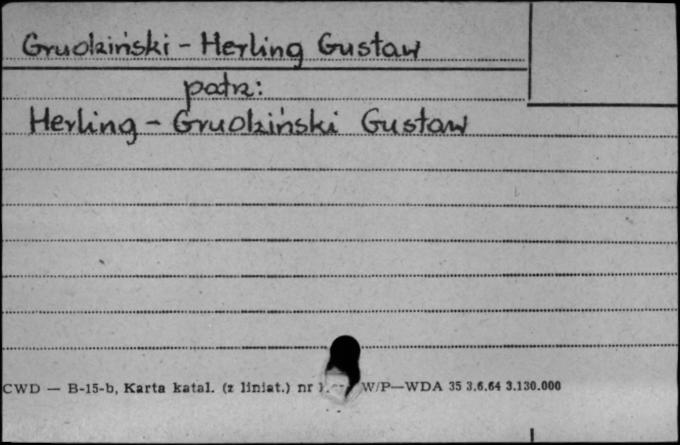 Grudziński - Herling Gustaw
patrz:
Herling - Grudziński Gustaw
CWD — B-15-b, Karta katal. (z liniat.) nr W/P—WDA 35 3.6.64 3.130.000